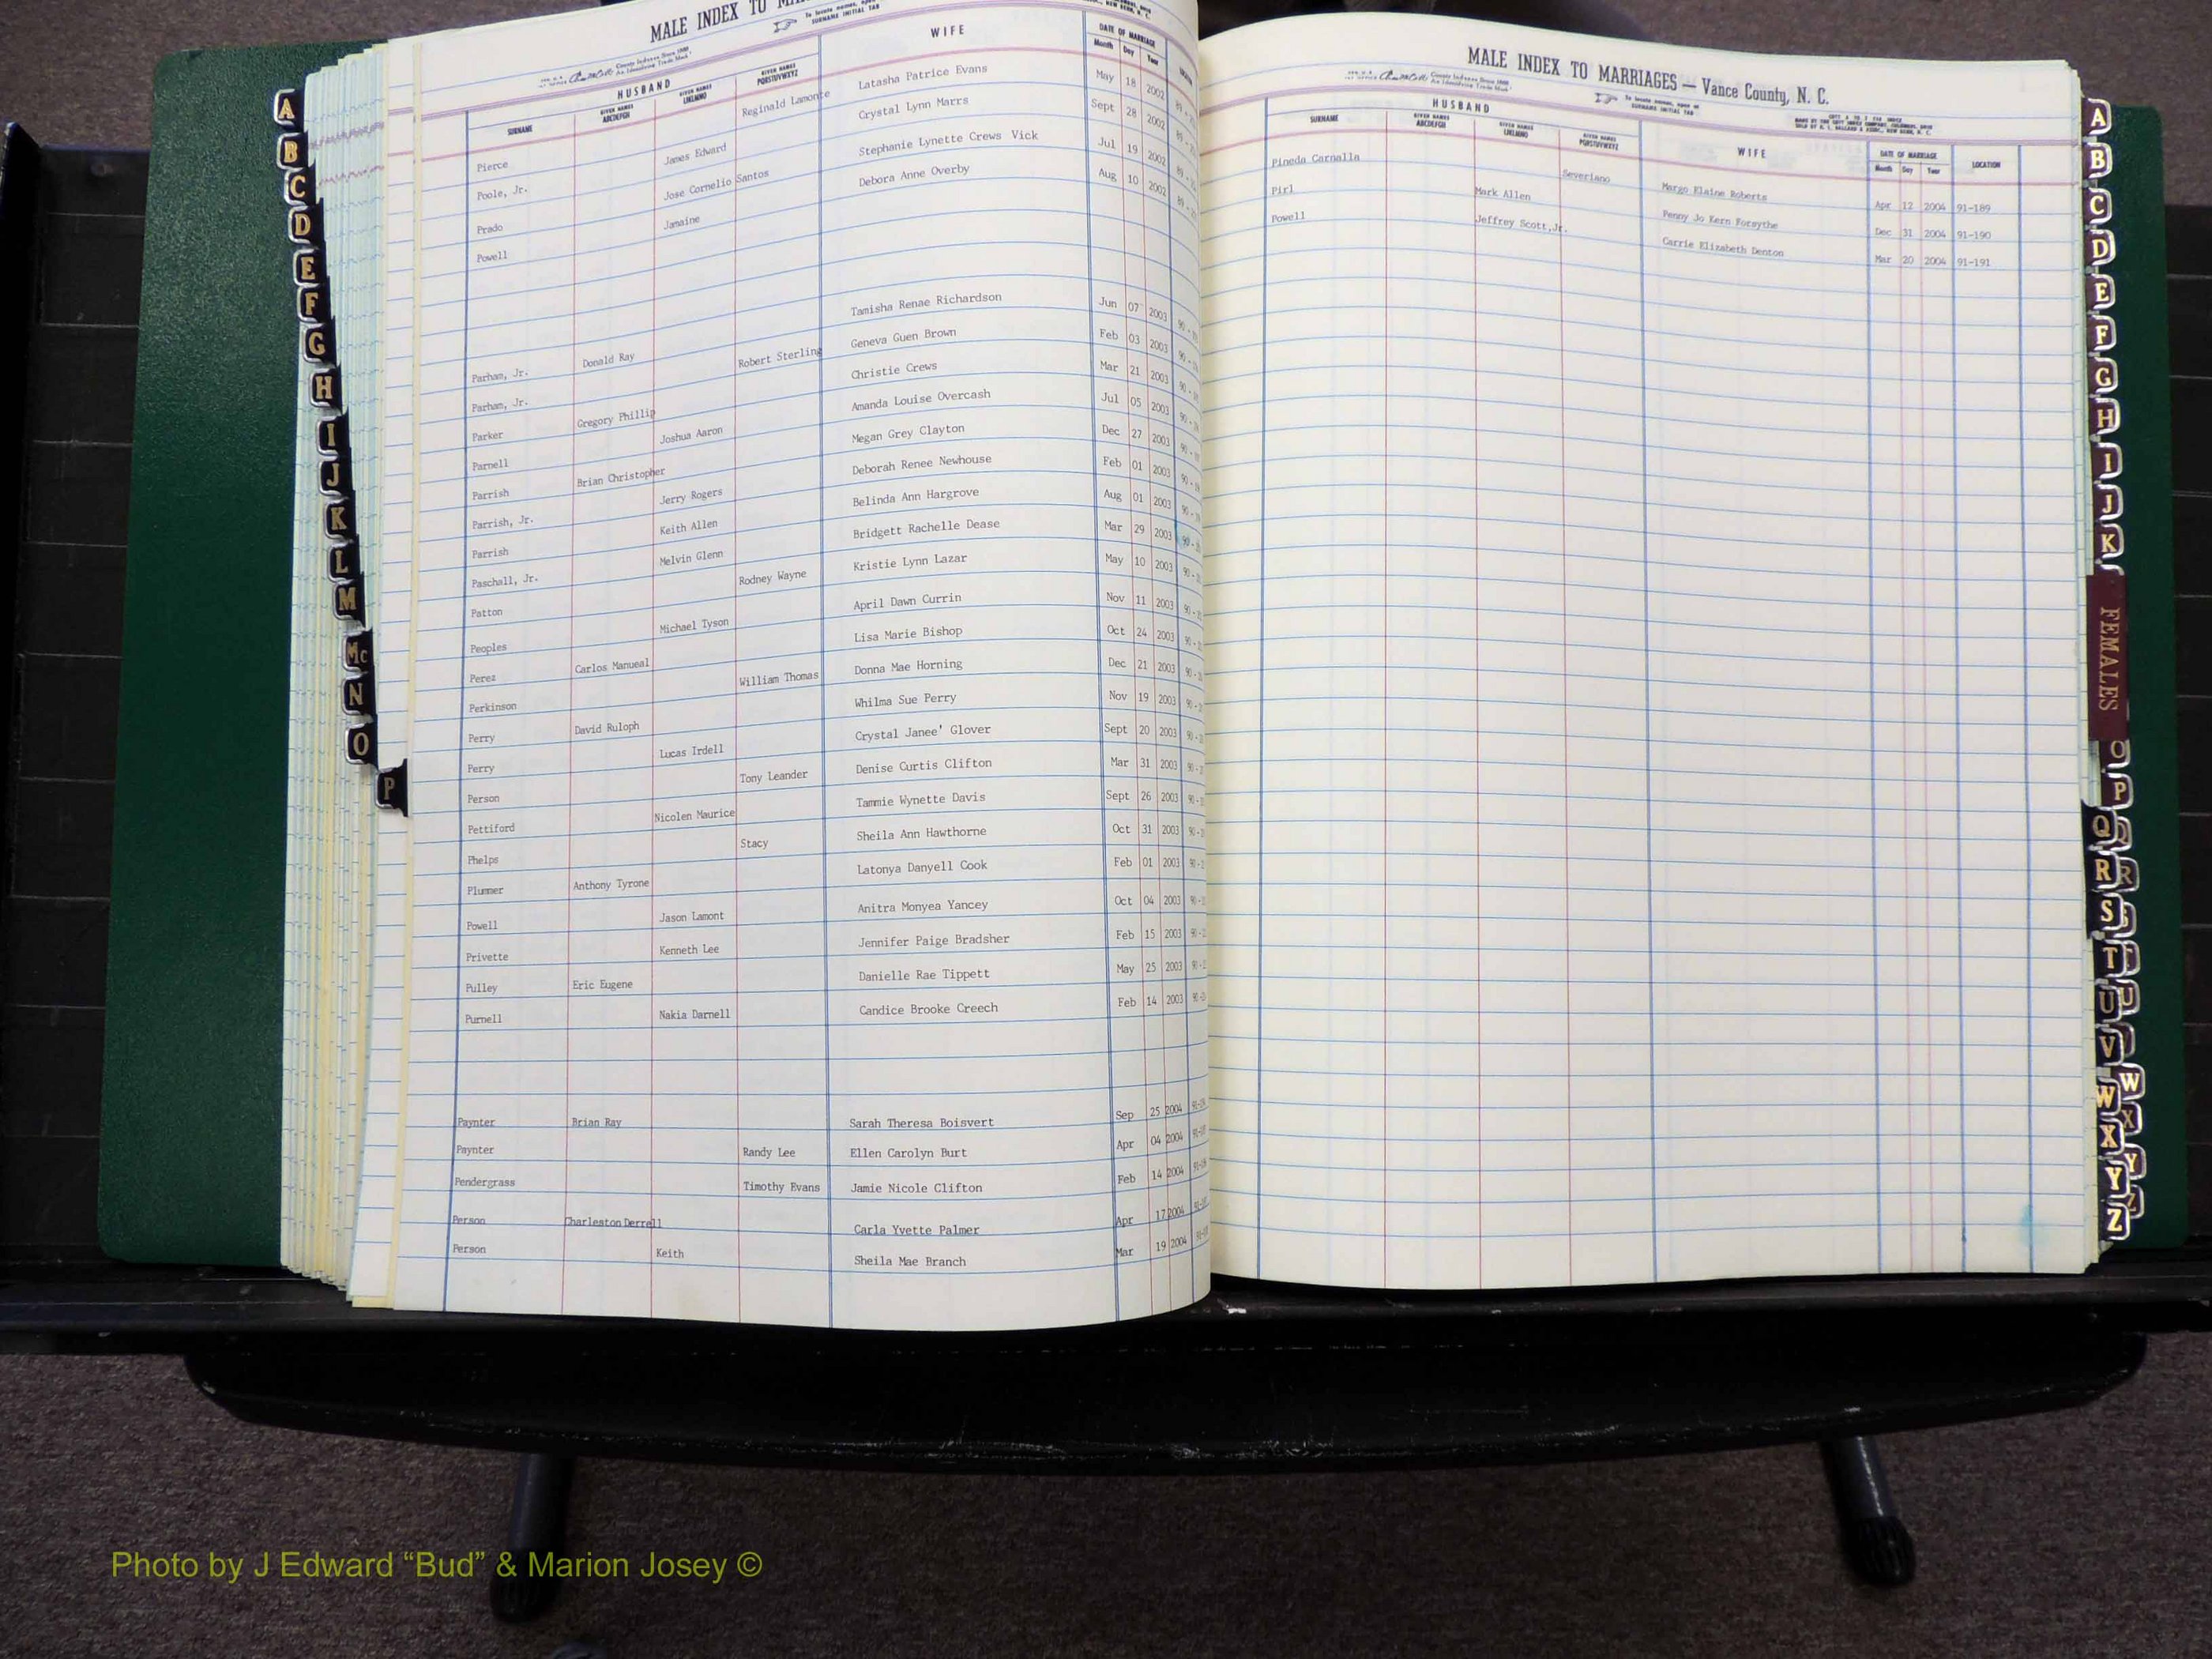 MALE INDEX TO
To locate names, open at
SURNAME INITIAL TAB
County Indexes Since 1888
An Identifying Trade Mark
HUSBAND
WIFE
DATE OF MARRIAGE
SURNAME
GIVEN NAMES ABCDEFGH
GIVEN NAMES IJKLMNO
GIVEN NAMES PQRSTUVWXYZ
Month Day Year
Pierce Reginald Lamonte Latasha Patrice Evans May 18 2002
Poole, Jr. James Edward Crystal Lynn Marrs Sept 28 2002
Prado Jose Cornelio Santos Stephanie Lynette Crews Vick Jul 19 2002
Powell Jamaine Debora Anne Overby Aug 10 2002
Parham, Jr. Donald Ray Tamisha Renae Richardson Jun 07 2003
Parham, Jr. Robert Sterling Geneva Guen Brown Feb 03 2003
Parker Gregory Phillip Christie Crews Mar 21 2003
Parnell Joshua Aaron Amanda Louise Overcash Jul 05 2003
Parrish Brian Christopher Megan Grey Clayton Dec 27 2003
Parrish, Jr. Jerry Rogers Deborah Renee Newhouse Feb 01 2003
Parrish Keith Allen Belinda Ann Hargrove Aug 01 2003
Paschall, Jr. Melvin Glenn Bridgett Rachelle Dease Mar 29 2003
Patton Rodney Wayne Kristie Lynn Lazar May 10 2003
Peoples Michael Tyson April Dawn Currin Nov 11 2003
Perez Carlos Manueal Lisa Marie Bishop Oct 24 2003
Perkinson William Thomas Donna Mae Horning Dec 21 2003
Perry David Ruloph Whilma Sue Perry Nov 19 2003
Perry Lucas Irdell Crystal Janee' Glover Sept 20 2003
Person Tony Leander Denise Curtis Clifton Mar 31 2003
Pettiford Nicolen Maurice Tammie Wynette Davis Sept 26 2003
Phelps Stacy Sheila Ann Hawthorne Oct 31 2003
Plummer Anthony Tyrone Latonya Danyell Cook Feb 01 2003
Powell Jason Lamont Anitra Monyea Yancey Oct 04 2003
Privette Kenneth Lee Jennifer Paige Bradsher Feb 15 2003
Pulley Eric Eugene Danielle Rae Tippett May 25 2003
Purnell Nakia Darnell Candice Brooke Creech Feb 14 2003
Paynter Brian Ray Sarah Theresa Boisvert Sep 25 2004
Paynter Randy Lee Ellen Carolyn Burt Apr 04 2004
Pendergrass Timothy Evans Jamie Nicole Clifton Feb 14 2004
Person Charleston Derrell Carla Yvette Palmer Apr 17 2004
Person Keith Sheila Mae Branch Mar 19 2004
MALE INDEX TO MARRIAGES — Vance County, N. C.
County Indexes Since 1888
An Identifying Trade Mark
To locate names, open at
SURNAME INITIAL TAB
HUSBAND
WIFE
DATE OF MARRIAGE
LOCATION
SURNAME
GIVEN NAMES ABCDEFGH
GIVEN NAMES IJKLMNO
GIVEN NAMES PQRSTUVWXYZ
Month Day Year
Pineda Carnalla Severiano Margo Elaine Roberts Apr 12 2004 91-189
Pirl Mark Allen Penny Jo Kern Forsythe Dec 31 2004 91-190
Powell Jeffrey Scott,Jr. Carrie Elizabeth Denton Mar 20 2004 91-191
A
B
C
D
E
F
G
H
I
J
K
L
M
Mc
N
O
P
A
B
C
D
E
F
G
H
I
J
K
FEMALES
O
P
Q
R R
S S
T
U U
V
W W
X X
Y Y
Z Z
Photo by J Edward “Bud” & Marion Josey ©